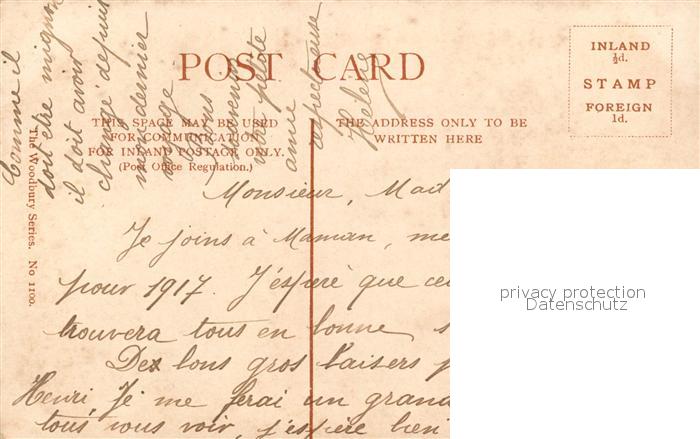 POST CARD
THIS SPACE MAY BE USED
FOR COMMUNICATION
FOR INLAND POSTAGE ONLY.
(Post Office Regulation.)
THE ADDRESS ONLY TO BE
WRITTEN HERE
INLAND
½d.
STAMP
FOREIGN
1d.
The Woodbury Series. No 1100.
Monsieur, Mad
Je joins à Maman, me
pour 1917. J'espère que ce
trouvera tous en bonne s
Dex bons gros baisers p
Henri Je me ferai un grand
tous vous voir, j'espère bien
Comme il
doit être mignon
il doit avoir
changé depuis
mon dernier
votre petite
amie
Hélène
privacy protection
Datenschutz